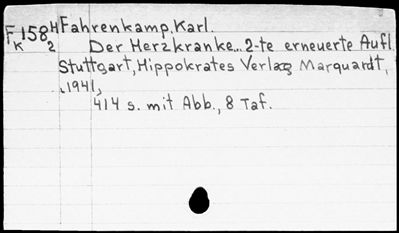 F 158 H Fahrenkamp, Karl.
K 2 Der Herzkranke... 2-te erneuerte Aufl.
Stuttgart, Hippokrates Verlag Marquardt,
1941,
414 s. mit Abb., 8 Taf.